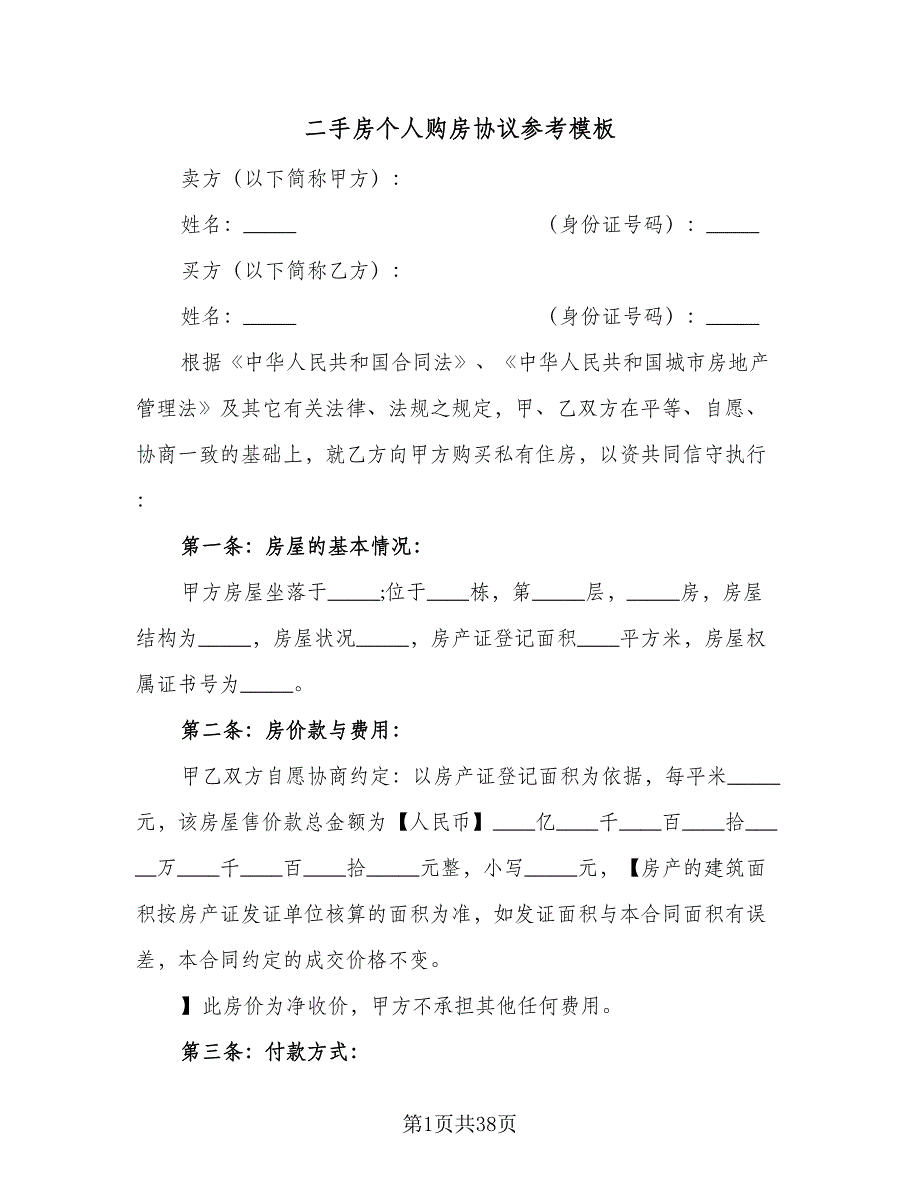 二手房个人购房协议参考模板
卖方（以下简称甲方）：
姓名：_____ （身份证号码）：_____
买方（以下简称乙方）：
姓名：_____ （身份证号码）：_____
根据《中华人民共和国合同法》、《中华人民共和国城市房地产
管理法》及其它有关法律、法规之规定，甲、乙双方在平等、自愿、
协商一致的基础上，就乙方向甲方购买私有住房，以资共同信守执行
：
第一条：房屋的基本情况：
甲方房屋坐落于_____;位于____栋，第_____层，_____房，房屋
结构为_____，房屋状况_____，房产证登记面积____平方米，房屋权
属证书号为_____。
第二条：房价款与费用：
甲乙双方自愿协商约定：以房产证登记面积为依据，每平米_____
元，该房屋售价款总金额为【人民币】____亿____千____百____拾___
__万____千____百____拾_____元整，小写_____元，【房产的建筑面
积按房产证发证单位核算的面积为准，如发证面积与本合同面积有误
差，本合同约定的成交价格不变。
】此房价为净收价，甲方不承担其他任何费用。
第三条：付款方式：
第1页共38页